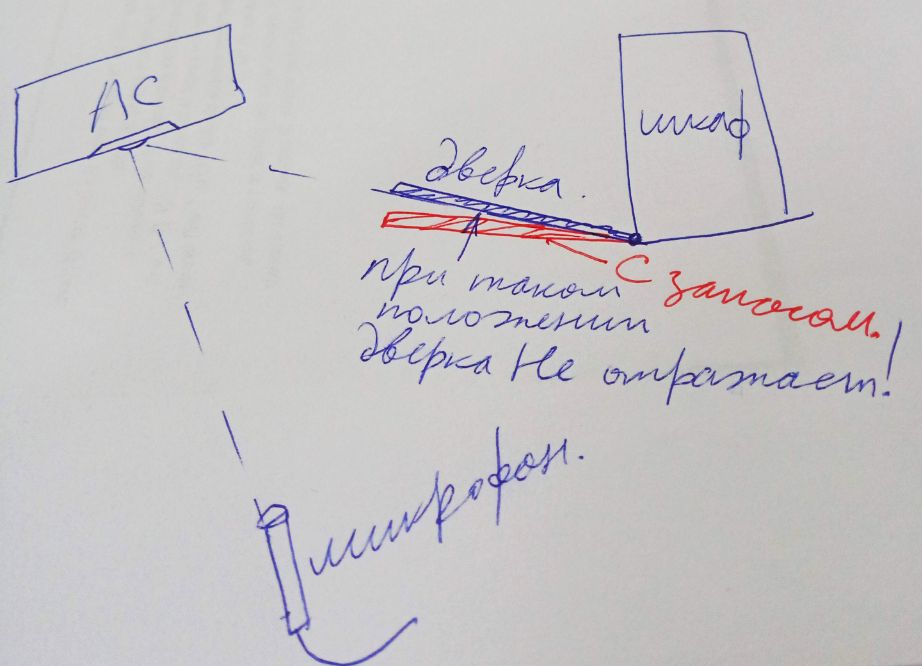 АС
шкаф
дверка.
при таком
положении
дверка Не отражает!
С запасом.
микрофон.